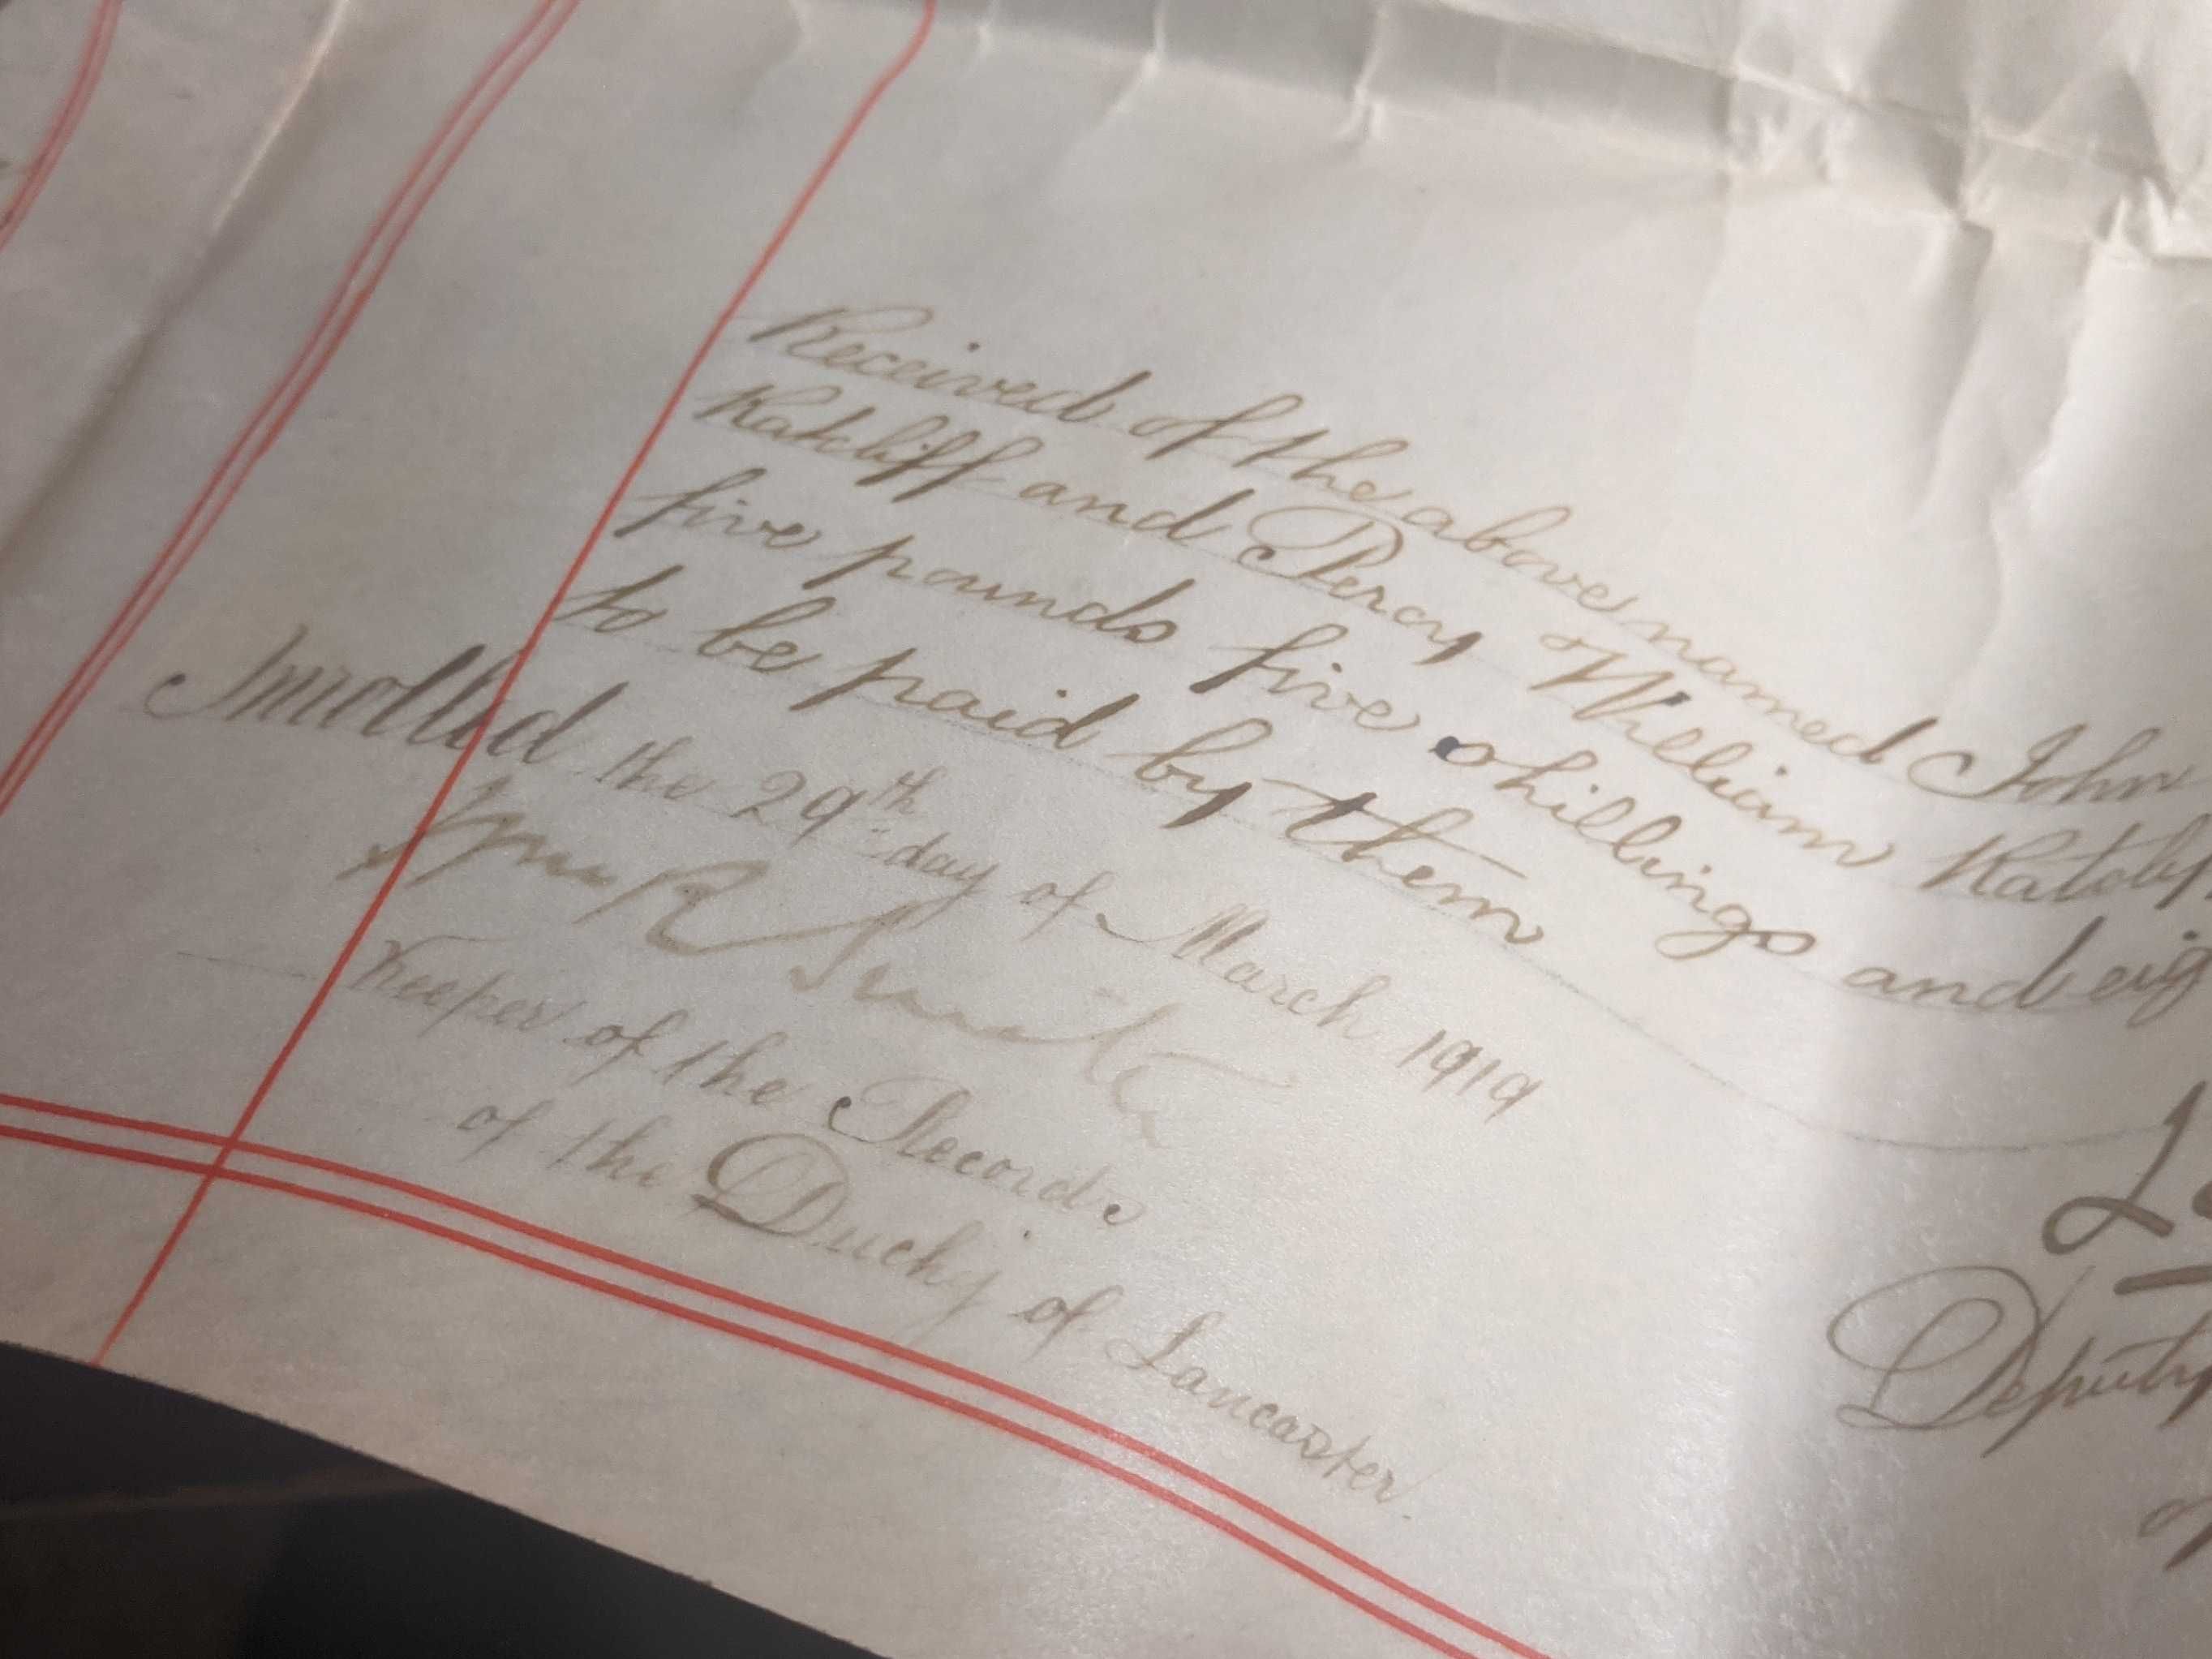 Received of the above named John
Ratcliff and Percy William Ratcliff
five pounds five shillings and eig
to be paid by them
Inrolled the 29th day of March 1919
Keeper of the Records
of the Duchy of Lancaster.
Deputy
of